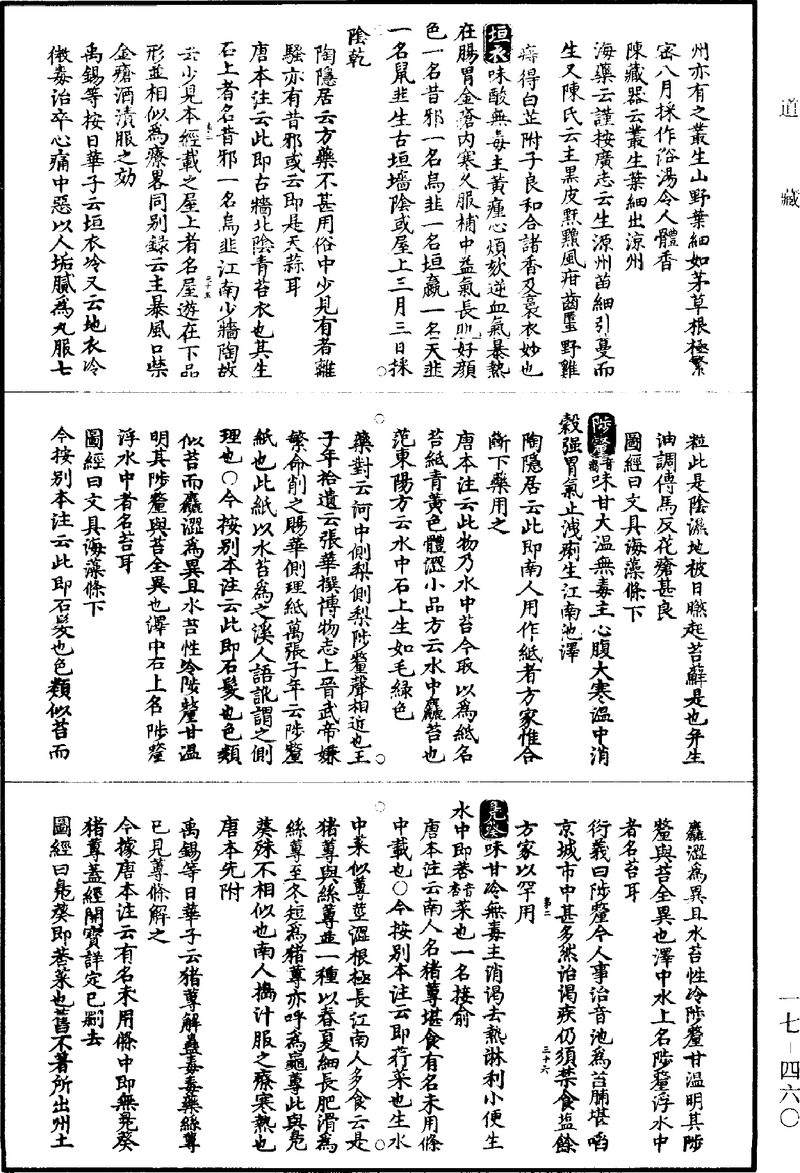 道藏
州亦有之叢生山野葉細如茅草根極繁
密八月採作浴湯令人體香
陳藏器云叢生葉細出涼州
海藥云謹按廣志云生源州苗細引蔓而
生又陳氏云主黑皮䵟䵳風疳齒䘌野雞
痔得白芷附子良和合諸香及裛衣妙也
垣衣味酸無毒主黃疸心煩欬逆血氣暴熱
在腸胃金瘡內寒久服補中益氣長肌好顏
色一名昔邪一名烏韭一名垣嬴一名天韭
一名鼠韭生古垣墻陰或屋上三月三日採
陰乾
陶隱居云方藥不甚用俗中少見有者離
騷亦有昔邪或云即是天蒜耳
唐本注云此即古牆北陰青苔衣也其生
石上者名昔邪一名烏韭江南少牆陶故
云少見本經載之屋上者名屋遊在下品
形並相似為療畧同別録云主暴風口噤
金瘡酒漬服之効
禹錫等按日華子云垣衣冷又云地衣冷
微毒治卒心痛中惡以人垢膩為丸服七
粒此是陰濕地被日曒起苔蘚是也并生
油調傅馬反花瘡甚良
圖經曰文具海藻條下
陟釐音離味甘大温無毒主心腹大寒溫中消
穀强胃氣止洩痢生江南池澤
陶隱居云此即南人用作紙者方家惟合
斷下藥用之
唐本注云此物乃水中苔今取以為紙名
苔紙青黄色體澀小品方云水中麤苔也
范東陽方云水中石上生如毛緑色
藥對云河中側梨側梨陟釐聲相近也王
子年拾遺云張華撰博物志上晉武帝嫌
繁命削之賜華側理紙萬張子年云陟釐
紙也此紙以水苔為之溪人語訛謂之側
理也〇今按別本注云此即石髮也色類
似苔而麤澀為異且水苔性冷陟釐甘温
明其陟釐與苔全異也澤中石上名陟釐
浮水中者名苔耳
圖經曰文具海藻條下
今按別本注云此即石髮也色類似苔而
麤澀為異且水苔性冷陟釐甘温明其陟
釐與苔全異也澤中水上名陟釐浮水中
者名苔耳
衍義曰陟釐今人事治音池為苔脯堪啗
京城市中甚多然治渴疾仍須禁食塩餘
方家以罕用
鳧葵味甘冷無毒主消渴去熱淋利小便生
水中即莕音杏菜也一名接俞
唐本注云南人名猪蓴堪食有名未用條
中載也〇今按別本注云即荇菜也生水
中葉似蓴莖澀根極長江南人多食云是
猪蓴與絲蓴並一種以春夏細長肥滑為
絲蓴至冬短為猪蓴亦呼為龜蓴此與鳧
葵殊不相似也南人擣汁服之療寒熱也
唐本先附
禹錫等日華子云猪蓴解蠱毒毒藥絲蓴
已見蓴條解之
今據唐本注云有名未用條中即無鳧葵
猪蓴蓋經開寶詳定已刪去
圖經曰鳧葵即莕菜也舊不著所出州土
一七－四六〇